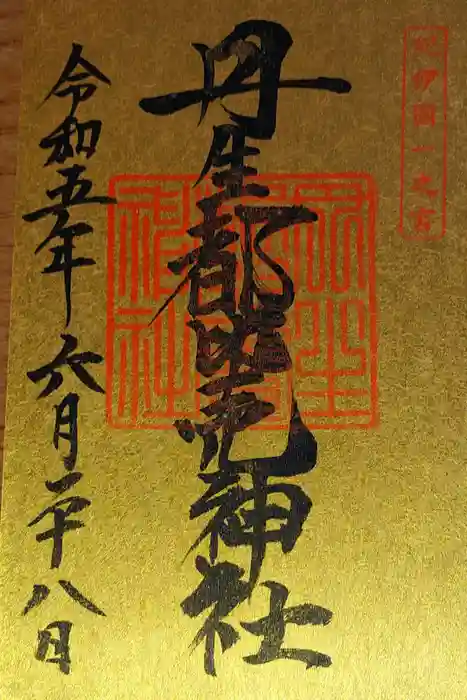 紀伊國一之宮
丹生都比売神社
令和五年六月二十八日